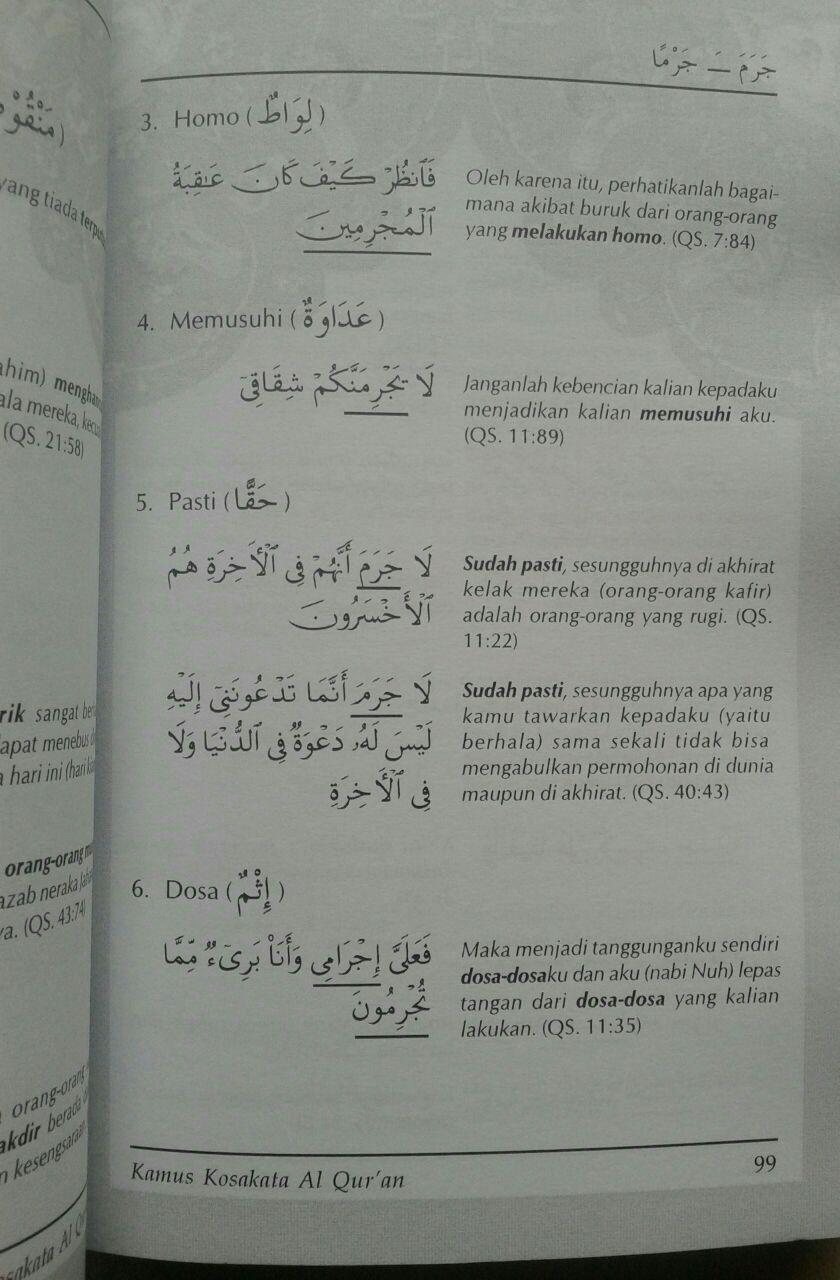 جَرَمَ – جَرْمًا
3. Homo (لِوَاطٌ)
فَٱنظُرْ كَيْفَ كَانَ عَـٰقِبَةُ
ٱلْمُجْرِمِينَ
Oleh karena itu, perhatikanlah bagai-
mana akibat buruk dari orang-orang
yang melakukan homo. (QS. 7:84)
4. Memusuhi (عَدَاوَةٌ)
لَا يَجْرِمَنَّكُمْ شِقَاقِىٓ
Janganlah kebencian kalian kepadaku
menjadikan kalian memusuhi aku.
(QS. 11:89)
5. Pasti (حَقًّا)
لَا جَرَمَ أَنَّهُمْ فِى ٱلْأَخِرَةِ هُمُ
ٱلْأَخْسَرُونَ
Sudah pasti, sesungguhnya di akhirat
kelak mereka (orang-orang kafir)
adalah orang-orang yang rugi. (QS.
11:22)
لَا جَرَمَ أَنَّمَا تَدْعُونَنِىٓ إِلَيْهِ
لَيْسَ لَهُۥ دَعْوَةٌ فِى ٱلدُّنْيَا وَلَا
فِى ٱلْأَخِرَةِ
Sudah pasti, sesungguhnya apa yang
kamu tawarkan kepadaku (yaitu
berhala) sama sekali tidak bisa
mengabulkan permohonan di dunia
maupun di akhirat. (QS. 40:43)
6. Dosa (إِثْمٌ)
فَعَلَىَّ إِجْرَامِى وَأَنَا۠ بَرِىٓءٌ مِّمَّا
تُجْرِمُونَ
Maka menjadi tanggunganku sendiri
dosa-dosaku dan aku (nabi Nuh) lepas
tangan dari dosa-dosa yang kalian
lakukan. (QS. 11:35)
Kamus Kosakata Al Qur'an
99
yang tiada
ala mereka,
(QS. 21:58)
rik sangat
dapat menebus
hari ini (hari
orang-orang
azab neraka
ya. (QS. 43:74)
orang-orang
akdir berada
n kesengsaraan